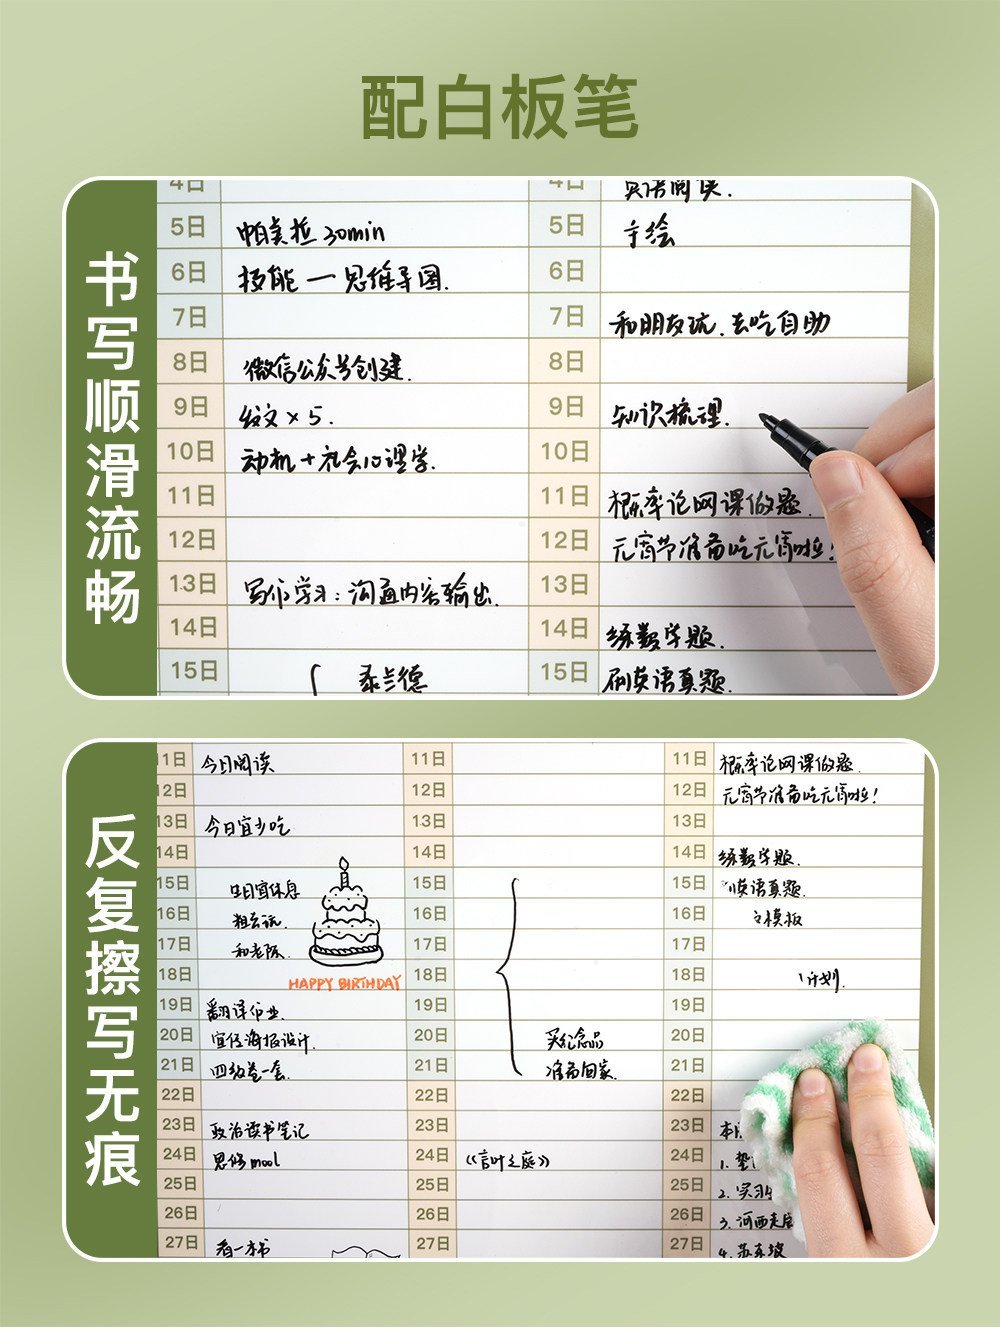 配白板笔
书写顺滑流畅
4日
5日 帕美拉 30min
6日 技能一思维导图.
7日
8日 微信公众号创建.
9日 发文×5.
10日 动机+社会心理学.
11日
12日
13日 写作学习:沟通内容输出.
14日
15日
4日 英语阅读.
5日 手绘
6日
7日 和朋友玩.去吃自助
8日
9日 知识梳理.
10日
11日 概率论网课做题.
12日 元宵节准备吃元宵啦!
13日
14日 练数学题.
15日 刷英语真题.
反复擦写无痕
11日 今日阅读
12日
13日 今日宜少吃
14日
15日 生日宜休息
16日
17日 和老陈.
18日 HAPPY BIRTHDAY
19日 翻译作业.
20日 宣传海报设计.
21日 四级卷一套.
22日
23日 政治读书笔记
24日 思修mool
25日
26日
27日 看一本书
11日
12日
13日
14日
15日
16日
17日
18日
19日
20日 买纪念品
21日 准备回家.
22日
23日
24日 《言叶之庭》
25日
26日
27日
11日 概率论网课做题.
12日 元宵节准备吃元宵啦!
13日
14日 练数学题.
15日 英语真题.
16日 模板
17日
18日 计划.
19日
20日
21日
22日
23日 本
24日 1.
25日 2. 实习
26日 3. 河西走
27日 4. 苏东坡